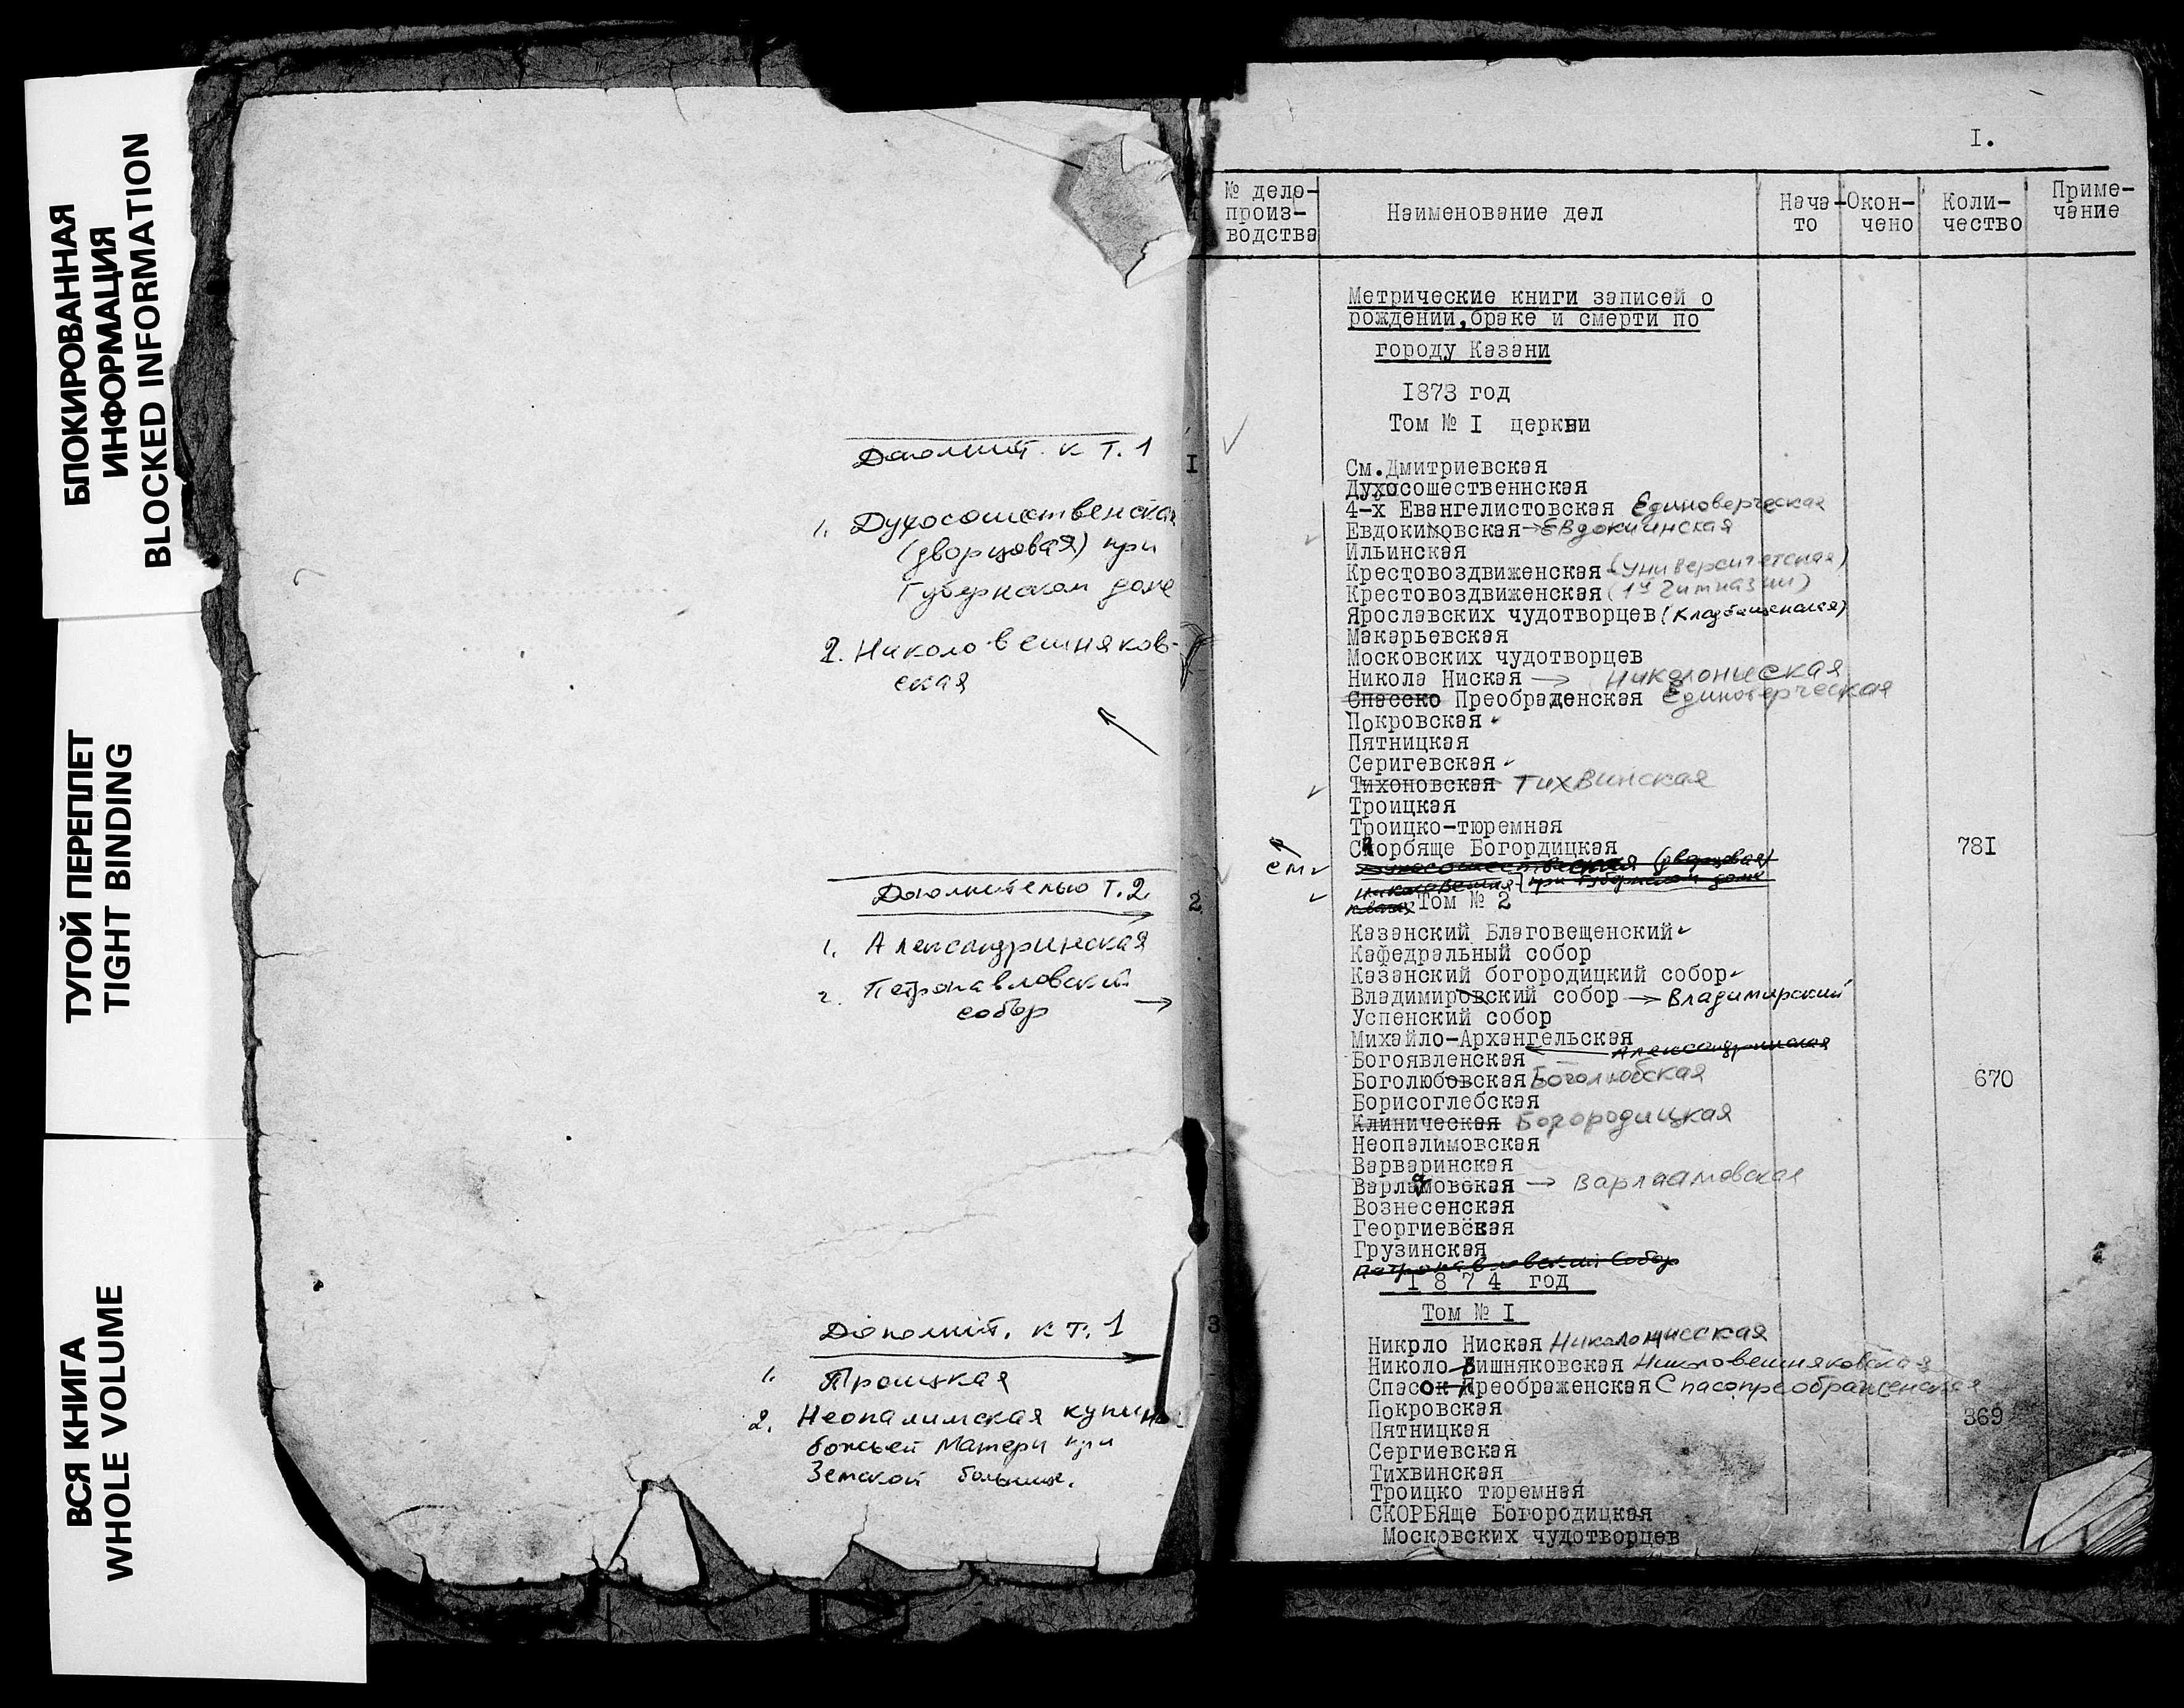 БЛОКИРОВАННАЯ
ИНФОРМАЦИЯ
BLOCKED INFORMATION
ТУГОЙ ПЕРЕПЛЕТ
TIGHT BINDING
ВСЯ КНИГА
WHOLE VOLUME
Дополнит. к т. 1
1. Духосошественская
(дворцовая) при
Губернском доме
2. Николовешняков-
ская
Дополнительно т. 2.
1. Александринская
2. Петропавловский
собор →
Дополнит. к т. 1
1. Троицкая
2. Неопалимская купина
божьей Матери при
Земской больнице.
I.
№ дело-
произ-
водства
Наименование дел
Нача-
то
Окон-
чено
Коли-
чество
Приме-
чание
Метрические книги записей о
рождении,браке и смерти по
городу Казани
1873 год
I
Том № I церкви
См.Дмитриевская
Духосошественнская
4-х Евангелистовская Единоверческая
Евдокимовская → Евдокиинская
Ильинская
Крестовоздвиженская (университетская)
Крестовоздвиженская (1й гимназии)
Ярославских чудотворцев (Кладбищенская)
Макарьевская
Московских чудотворцев
Никола Ниская → Николониская
Спасско Преображенская Единоверческая
Покровская
Пятницкая
Серигевская
Тихоновская Тихвинская
Троицкая
Троицко-тюремная
Скорбяще Богордицкая 781
см. Духосошественская (дворцовая)
при Губернском доме
2 Том № 2
Казанский Благовещенский
Кафедральный собор
Казанский богородицкий собор
Владимировский собор → Владимирский
Успенский собор
Михайло-Архангельская
Александринская
Богоявленская
Боголюбовская Боголюбская 670
Борисоглебская
Клиническая Богородицкая
Неопалимовская
Варваринская
Варламовская → Варлаамовская
Вознесенская
Георгиевская
Грузинская
Петропавловский Собор
1 8 7 4 год
3 Том № I
Никрло Ниская Николонисская
Николо Вишняковская Николовешняковская
Спасок Преображенская Спасопреображенская
Покровская 369
Пятницкая
Сергиевская
Тихвинская
Троицко тюремная
СКОРБЯще Богородицкая
Московских чудотворцев